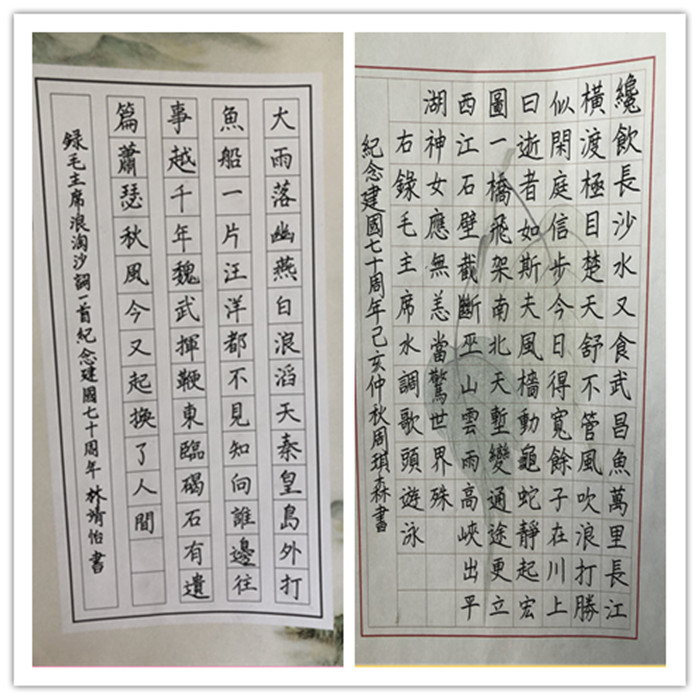 大雨落幽燕白浪滔天秦皇島外打
魚船一片汪洋都不見知向誰邊往
事越千年魏武揮鞭東臨碣石有遺
篇蕭瑟秋風今又起換了人間
錄毛主席浪淘沙詞一首紀念建國七十周年林靖怡書
纔飲長沙水又食武昌魚萬里長江
橫渡極目楚天舒不管風吹浪打勝
似閑庭信步今日得寬餘子在川上
曰逝者如斯夫風檣動龜蛇靜起宏
圖一橋飛架南北天塹變通途更立
西江石壁截斷巫山雲雨高峽出平
湖神女應無恙當驚世界殊
右錄毛主席水調歌頭遊泳
紀念建國七十周年己亥仲秋周琪森書